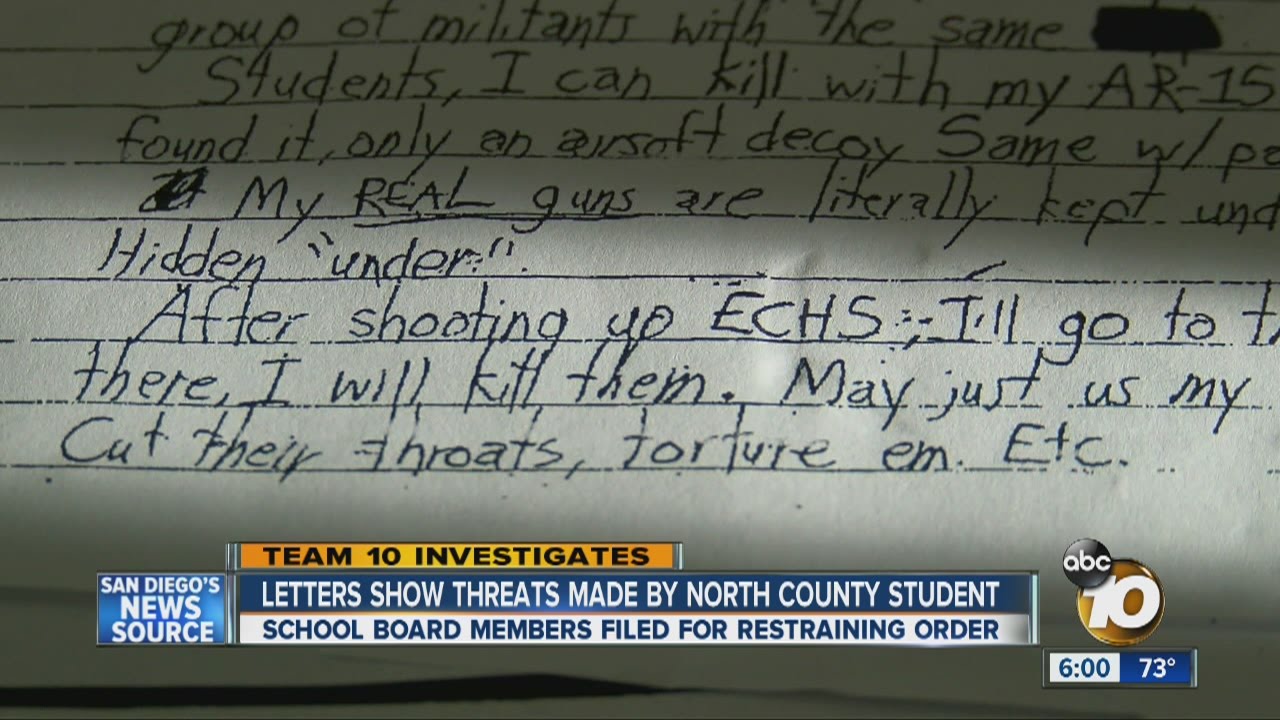 group of militants with the same
Students, I can kill with my AR-15
found it, only an airsoft decoy Same w/
My REAL guns are literally kept
Hidden "under".
After shooting up ECHS; I'll go to
there, I will kill them. May just us my
Cut their throats, torture em. Etc.
TEAM 10 INVESTIGATES
SAN DIEGO'S
NEWS
SOURCE
LETTERS SHOW THREATS MADE BY NORTH COUNTY STUDENT
SCHOOL BOARD MEMBERS FILED FOR RESTRAINING ORDER
abc
10
6:00 73°